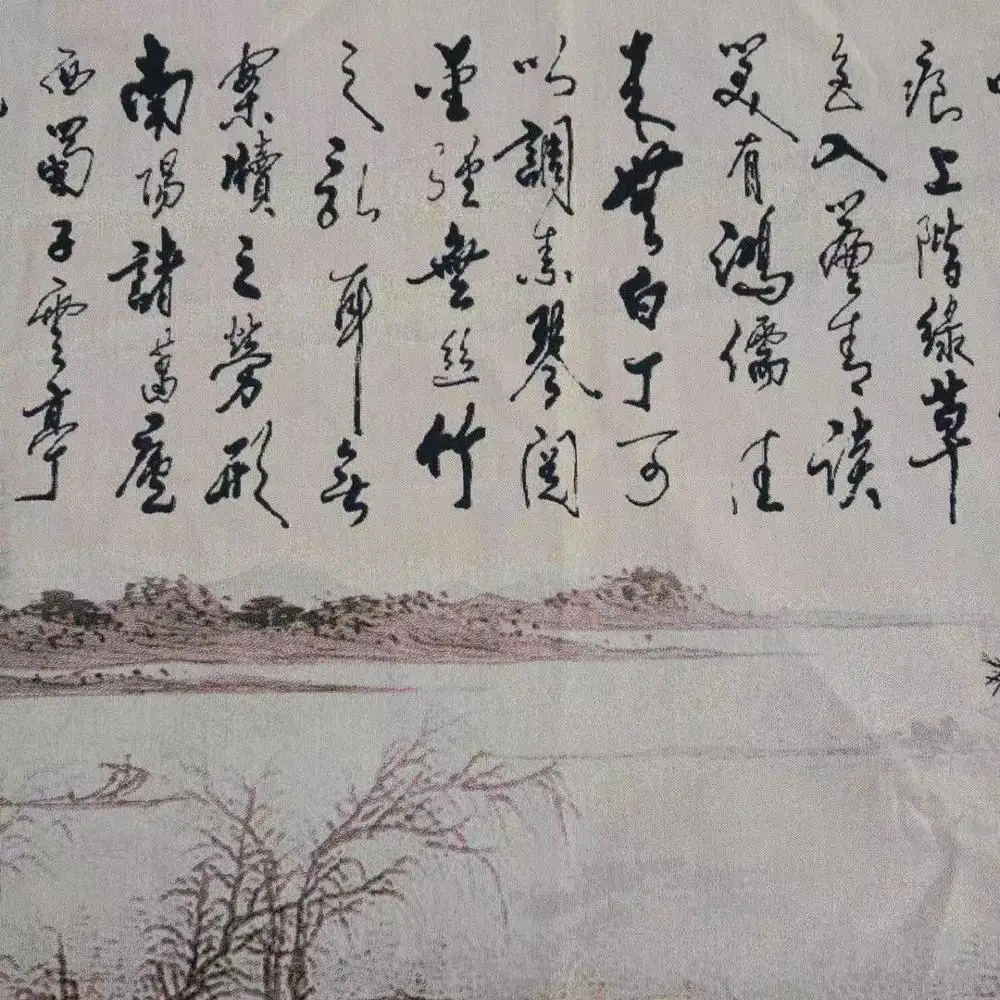 痕上階綠草
色入簾青談
笑有鴻儒往
来無白丁可
以調素琴閱
金經無絲竹
之乱耳无
案牘之勞形
南陽諸葛廬
西蜀子雲亭